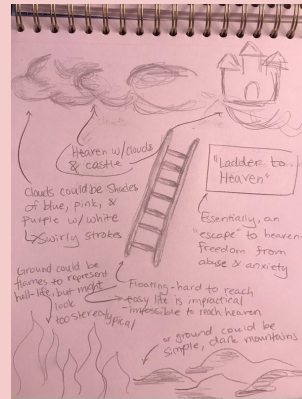 clouds
Heaven w/clouds
& castle
"Ladder to
Heaven"
Clouds could be Shades
of blue, pink, &
purple w/ white
↳ Swirly strokes
Essentially, an
"escape" to heaven-
freedom from
abuse & anxiety
Ground could be
flames to represent
hell-life, but might
look
too stereotypical
Floating-hard to reach
easy life is impractical
impossible to reach heaven
or ground could be
simple, dark mountains